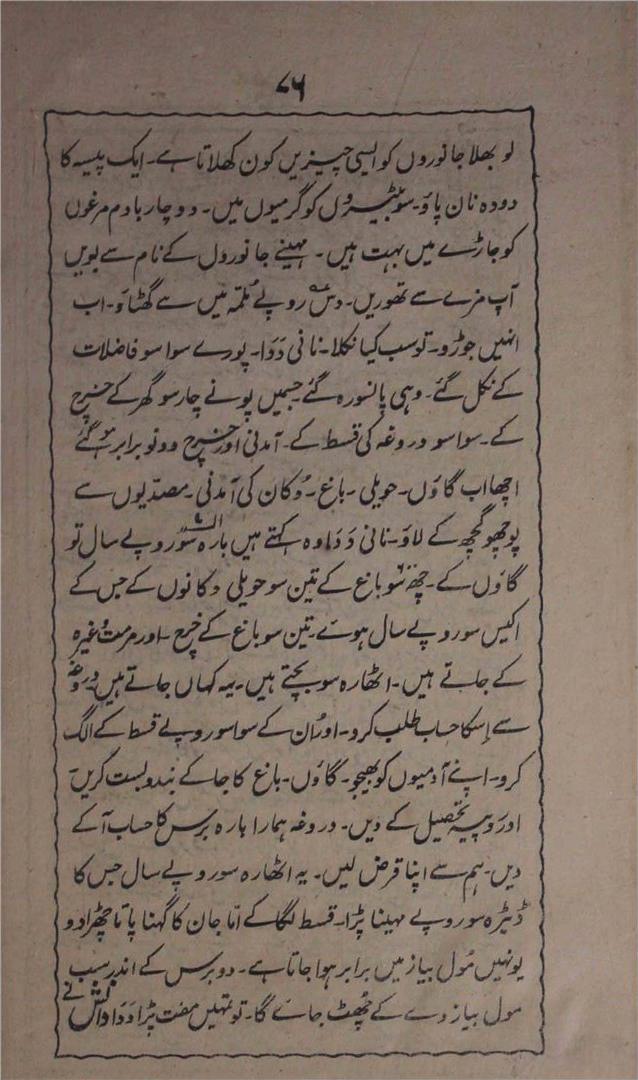 ۷۶
لو بھلا جانوروں کو ایسی چیزیں کون کھلاتا ہے۔ ایک پیسہ کا
دودہ نان پاؤ۔ سو بٹیروں کو گرمیوں میں۔ دو چار بادم مرغوں
کو جاڑے میں بہت ہیں۔ مہینے جانوروں کے نام سے لویں
آپ مزے سے تھوریں۔ دس روپے میں سے گھٹاؤ۔ اب
انہیں جوڑو۔ تو سب کیا نکلا۔ نانی ددا۔ پورے سوا سو فاضلات
کے نکل گئے۔ وہی پانسورہ گئے جسمیں پونے چار سو گھر کے خرچ
کے۔ سوا سو دروغہ کی قسط کے۔ آمدنی اور خرچ دونو برابر ہو گئے
اچھا اب گاؤں۔ حویلی۔ باغ۔ دُکان کی آمدنی۔ مصدیوں سے
پوچھ گچھ کے لاؤ۔ نانی ددا وہ کہتے ہیں بارہ سو روپے سال تو
گاؤں کے۔ چھ سو باغ کے تین سو حویلی دکانوں کے جس کے
اکیس سو روپے سال ہوئے۔ تین سو باغ کے خرچ۔ اور مرمت وغیرہ
کے جاتے ہیں۔ اٹھارہ سو بچتے ہیں۔ یہ کہاں جاتے ہیں دروغہ
سے اِسکا حساب طلب کرو۔ اور اُن کے سوا سو روپے قسط کے الگ
کرو۔ اپنے آدمیوں کو بھیجو۔ گاؤں۔ باغ کا جا کے بندوبست کریں
اور روپیہ تحصیل کے دیں۔ دروغہ ہمارا بارہ برس کا حساب آ کے
دیں۔ ہم سے اپنا قرض لیں۔ یہ اٹھارہ سو روپے سال جس کا
ڈیڑہ سو روپے مہینا پڑا۔ قسط لگا کے امّا جان کا گہنا پاتا چھڑا دو
یونہیں مُول بیاز میں برابر ہوا جاتا ہے۔ دو برس کے اندر سب
مول بیاز دے کے چُھٹ جائے گا۔ تو تمہیں مفت پڑا ددا دانش نے